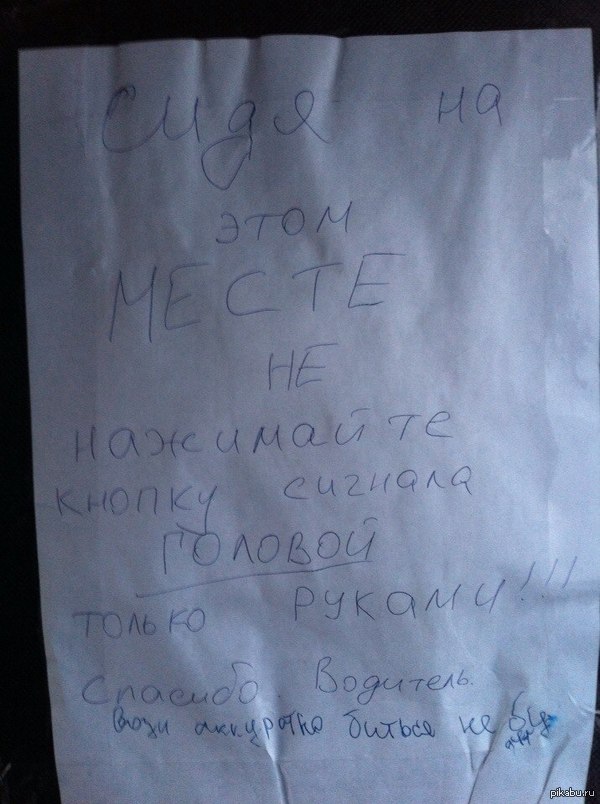 Сидя на
этом
МЕСТЕ
НЕ
нажимайте
кнопку сигнала
ГОЛОВОЙ
только руками!!!
Спасибо. Водитель.
Вози аккуротно биться не
pikabu.ru